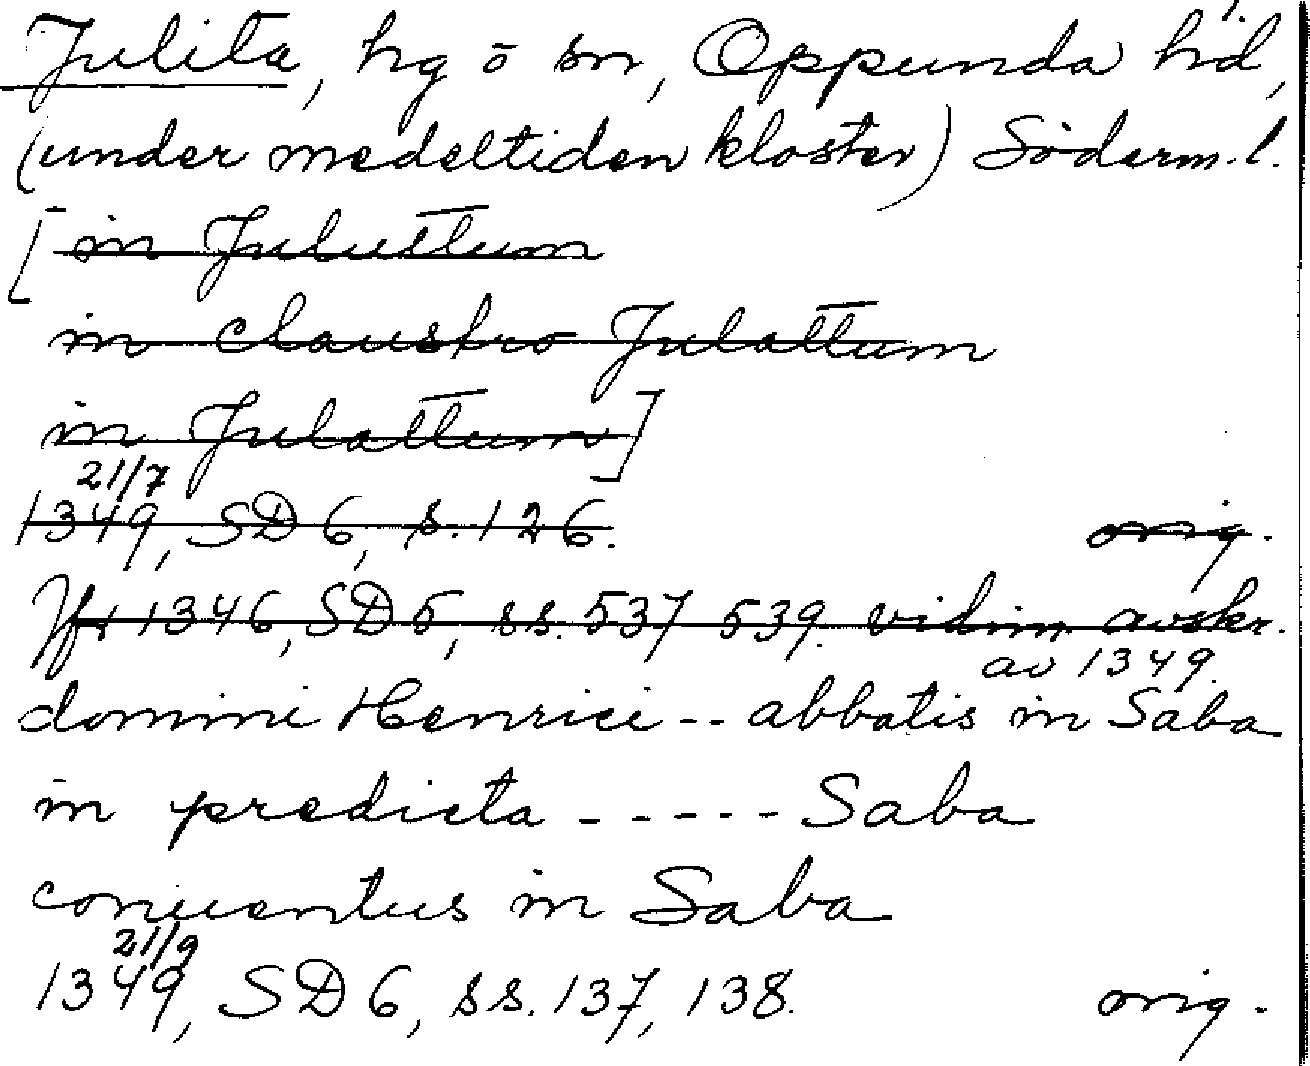 Julita, hg o sn, Oppunda hd,
(under medeltiden kloster) Söderm. l.
[in Juluttum
in claustro Julattum
in Julattum]
21/7
1349, SD 6, s. 126. orig.
Jfr 1346, SD 5, ss. 537 539. vidim. avskr.
av 1349.
domini Henrici -- abbatis in Saba
in predicta ----- Saba
conuentus in Saba
21/9
1349, SD 6, ss. 137, 138. orig.